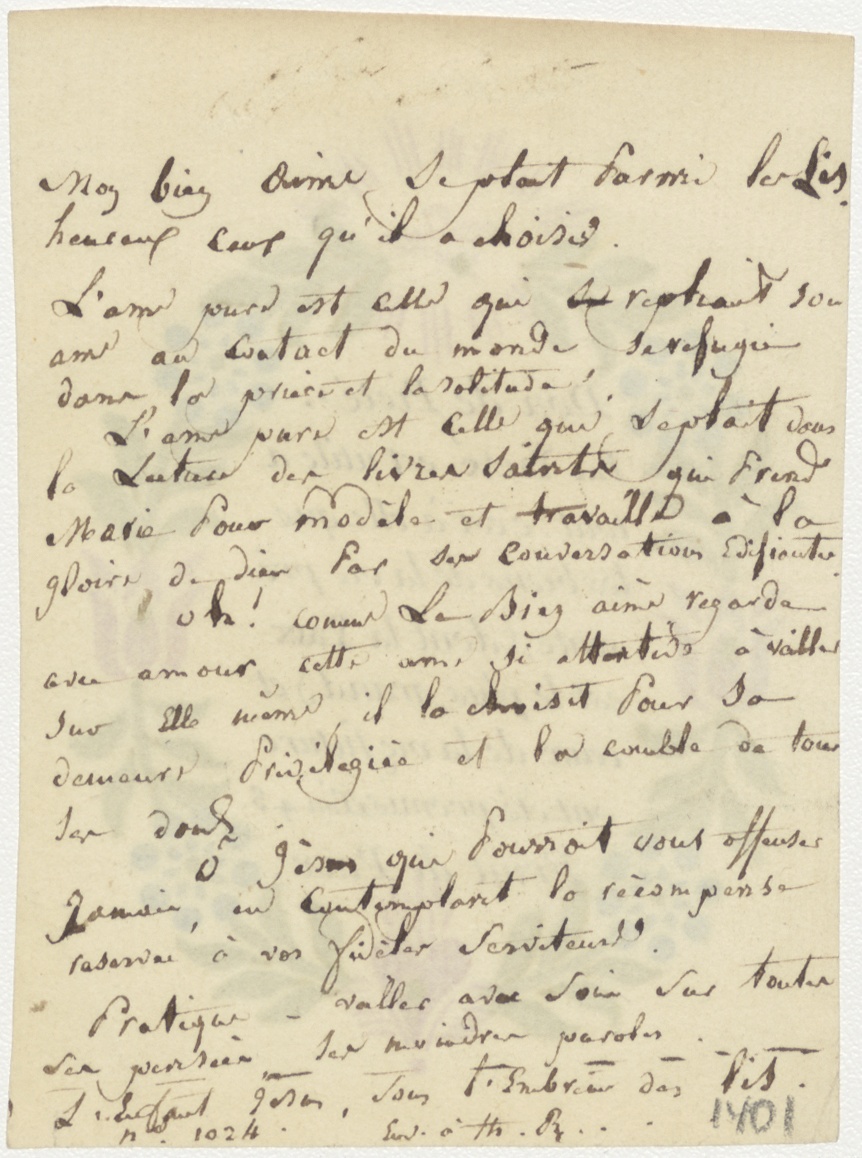 Mon bien Aimé Se plait Parmi les Lis.
heureux ceux qu'il a choisis.
L'ame pure est celle qui se repliant son
ame au contact du monde se refugie
dans la prière et la solitude.
L'ame pure est celle qui se plait dans
la Lecture des livres Saints qui Prend
Marie Pour modèle et travaille à la
gloire de dieu Par ses conversations Edifiantes
oh! comme Le Bien aimé regarde
avec amour cette ame si attentive à vailler
sur Elle même, il la choisit Pour Sa
demeure Privilegiée et la comble de tous
ses dons
O Jésus qui Pourroit vous offenser
Jamais, en contemplant la récompense
reservée à vos fidèles Serviteurs.
Pratique - vailler avec Soin Sur toutes
Ses pensées, Ses moindres paroles.
L'Enfant Jésus, Sous l'Embrème des lis.
n°. 1024. Env. à th. R. . .
1401